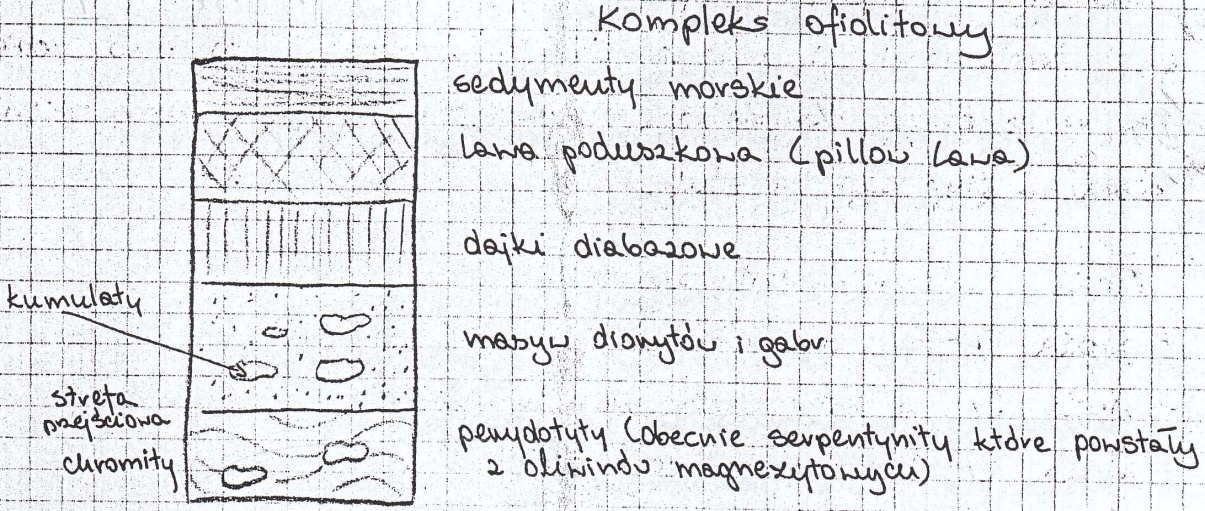 Kompleks ofiolitowy
sedymenty morskie
lawa poduszkowa (pillow lawa)
dajki diabazowe
kumulaty
masyw diorytów i gabr
strefa
przejściowa
chromity
perydotyty (obecnie serpentynity które powstały
z oliwinów magnezytowych)